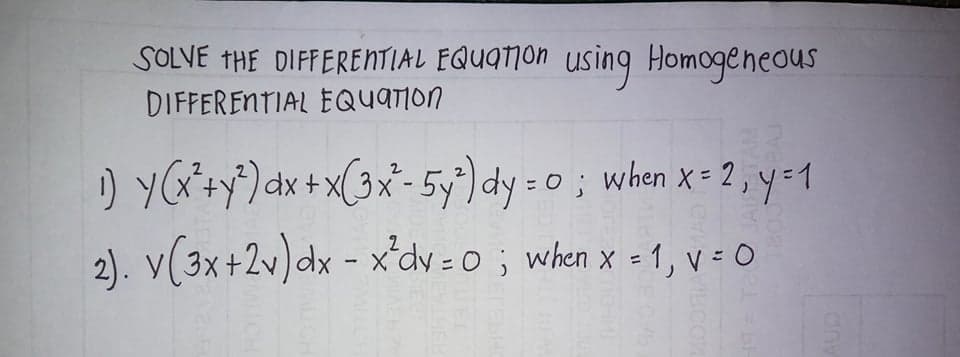 SOLVE THE DIFFERENTIAL EQUATION using Homogeneous
DIFFERENTIAL EQUATION
1) y(x²+y²)dx+x(3x²-5y²)dy=0; when x=2, y=1
2). v(3x+2v)dx - x²dv=0; when x=1, v=0